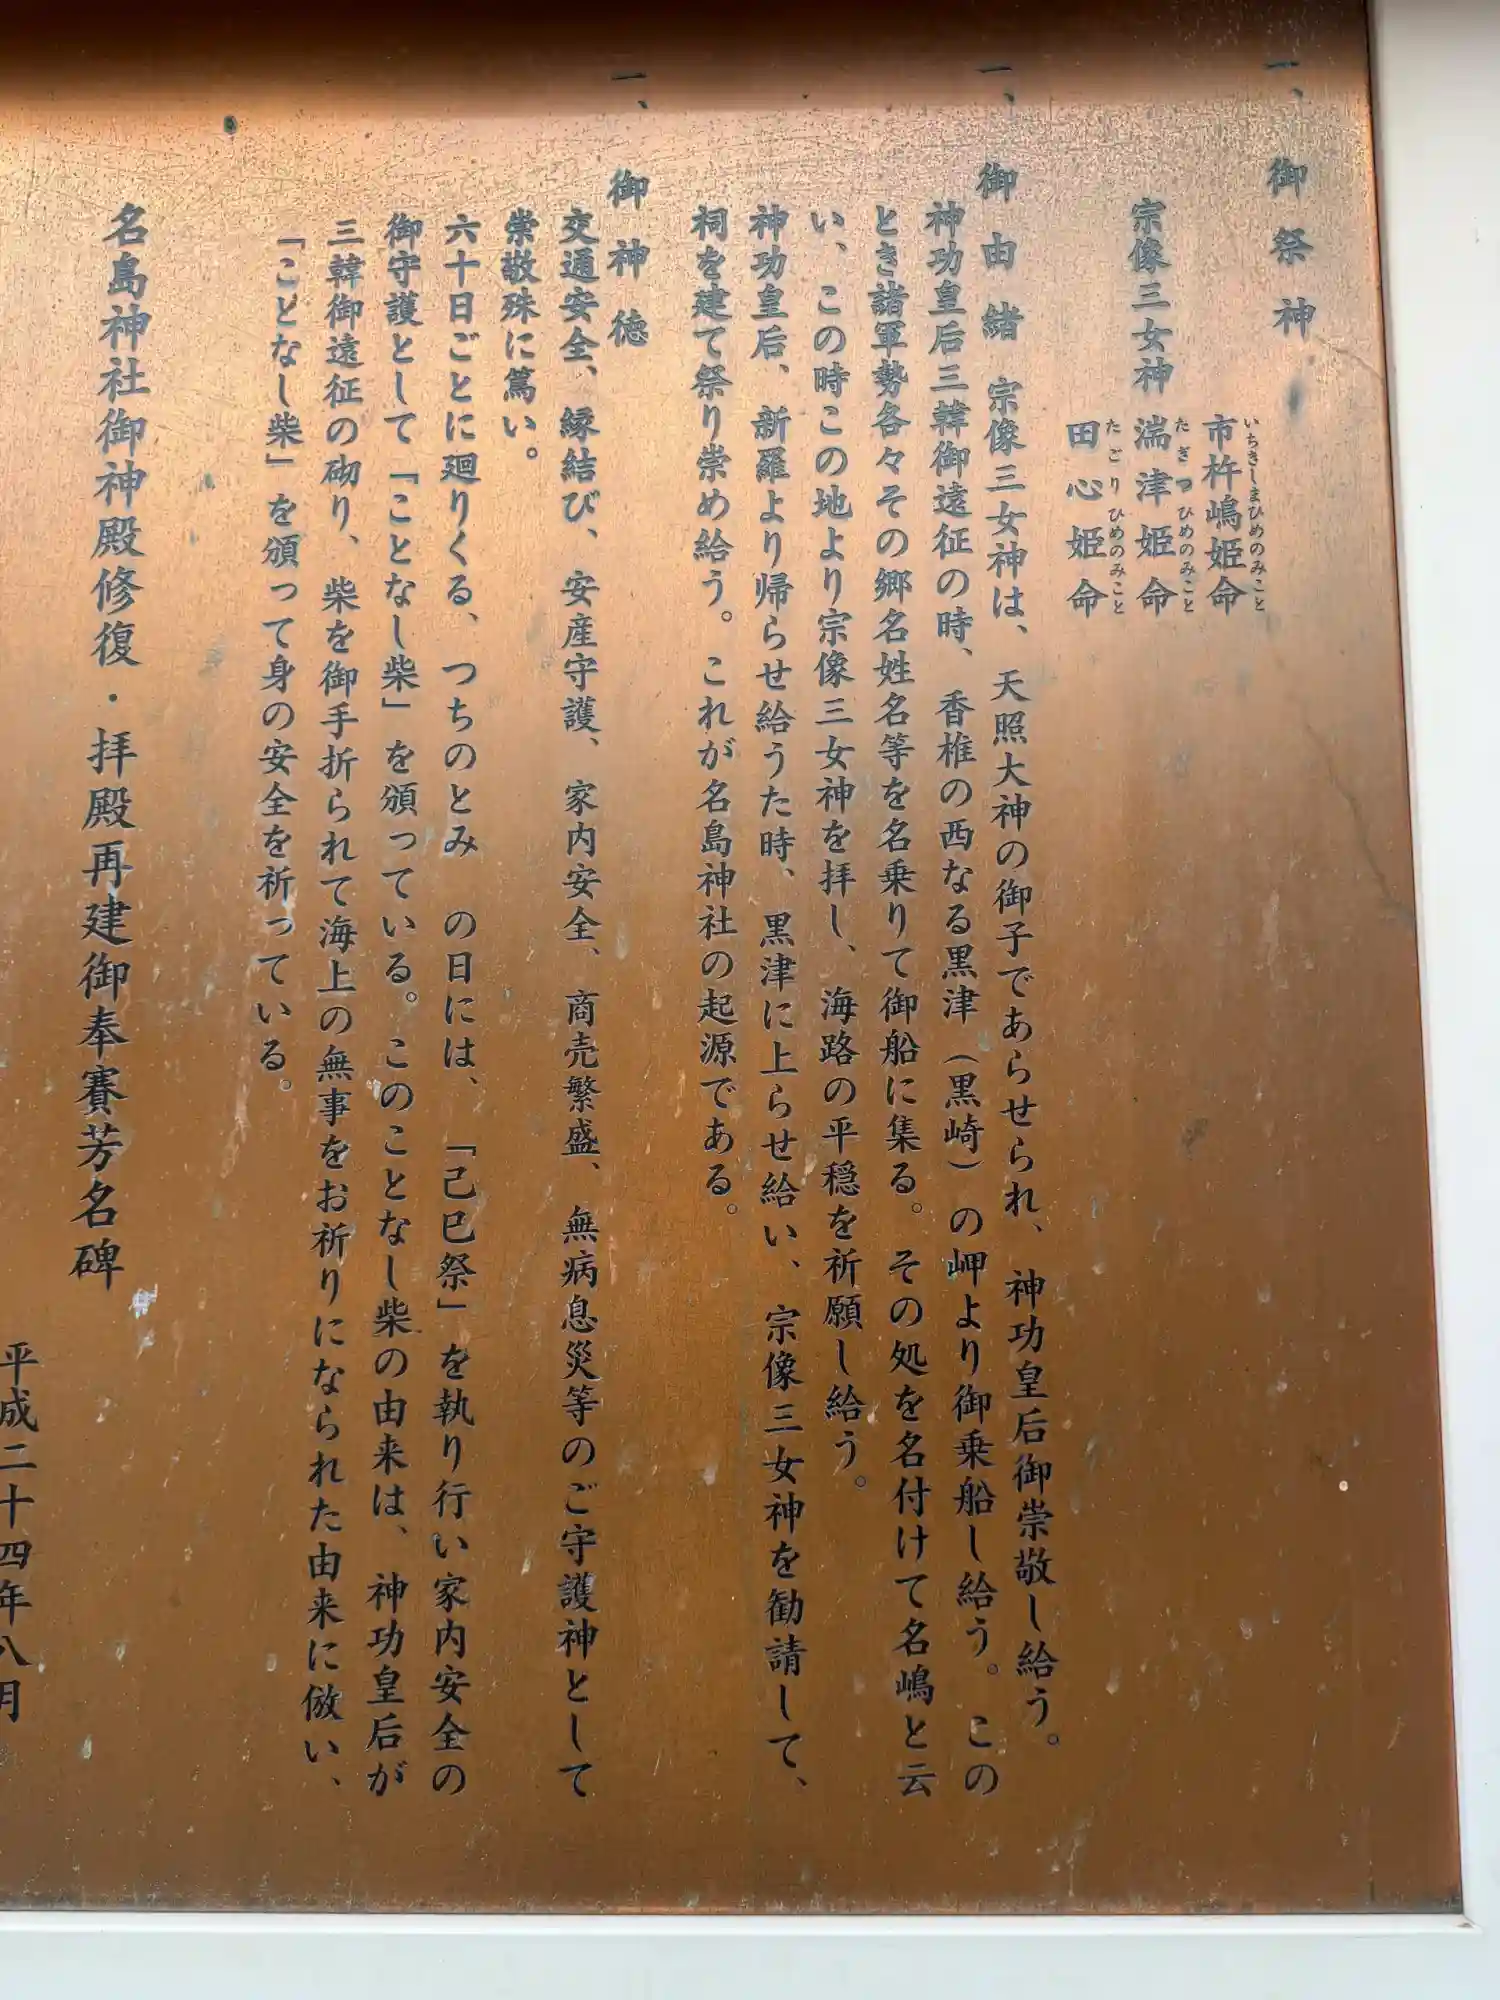 一、御祭神
いちきしまひめのみこと
市杵嶋姫命
宗像三女神 湍津姫命
たぎつひめのみこと
田心姫命
たごりひめのみこと
一、御由緒 宗像三女神は、天照大神の御子であらせられ、神功皇后御崇敬し給う。
神功皇后三韓御遠征の時、香椎の西なる黒津（黒崎）の岬より御乗船し給う。この
とき諸軍勢各々その郷名姓名等を名乗りて御船に集る。その処を名付けて名嶋と云
い、この時この地より宗像三女神を拝し、海路の平穏を祈願し給う。
神功皇后、新羅より帰らせ給うた時、黒津に上らせ給い、宗像三女神を勧請して、
祠を建て祭り崇め給う。これが名島神社の起源である。
一、御神徳
交通安全、縁結び、安産守護、家内安全、商売繁盛、無病息災等のご守護神として
崇敬殊に篤い。
六十日ごとに廻りくる、つちのとみ の日には、「己巳祭」を執り行い家内安全の
御守護として「ことなし柴」を頒っている。このことなし柴の由来は、神功皇后が
三韓御遠征の砌り、柴を御手折られて海上の無事をお祈りになられた由来に倣い、
「ことなし柴」を頒って身の安全を祈っている。
名島神社御神殿修復・拝殿再建御奉賽芳名碑
平成二十四年八月